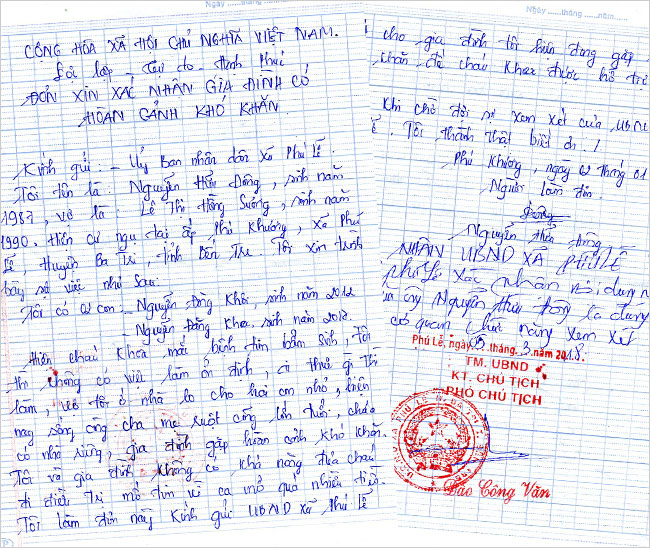 Ngày ......tháng ......năm......
CỘNG HÒA XÃ HỘI CHỦ NGHĨA VIỆT NAM.
Độc lập - Tự do - Hạnh Phúc
ĐƠN XIN XÁC NHẬN GIA ĐÌNH CÓ
HOÀN CẢNH KHÓ KHĂN.
Kính gửi: - Ủy Ban nhân dân xã Phú Lễ.
Tôi tên là: Nguyễn Hữu Đông, sinh năm
1987, vợ là: Lê Thị Hồng Sương, sinh năm
1990. Hiện cư ngụ tại ấp Phú Khương, xã Phú
Lễ, Huyện Ba Tri, tỉnh Bến Tre. Tôi xin trình
bày sự việc như sau:
Tôi có 2 con - Nguyễn Đăng Khôi, sinh năm 2012
- Nguyễn Đăng Khoa, sinh năm 2017
Hiện cháu Khoa mắc bệnh tim bẩm sinh, Tôi
thì không có việc làm ổn định, ai thuê gì thì
làm, vợ tôi ở nhà lo cho hai con nhỏ, hiện
nay sống cùng cha mẹ ruột cũng lớn tuổi, chưa
có nhà riêng, gia đình gặp hoàn cảnh khó khăn.
Tôi và gia đình không có khả năng đưa cháu
đi điều trị mổ tim vì ca mổ quá nhiều tiền.
Tôi làm đơn này kính gửi UBND xã Phú Lễ
Ngày ......tháng ......năm......
cho gia đình tôi hiện đang gặp
khăn để cháu Khoa được hỗ trợ
Khi chờ đợi sự xem xét của UBND
. Tôi thành thật biết ơn!
Phú Khương, ngày 2 tháng 01
Người làm đơn.
Đông
Nguyễn Hữu Đông
NHẬN UBND XÃ PHÚ LỄ
Phú Lễ xác nhận nội dung
ông Nguyễn Hữu Đông là đúng
cơ quan chức năng xem xét
Phú Lễ, ngày 05 tháng 3 năm 2018.
TM. UBND
KT. CHỦ TỊCH
PHÓ CHỦ TỊCH
Đào Công Văn